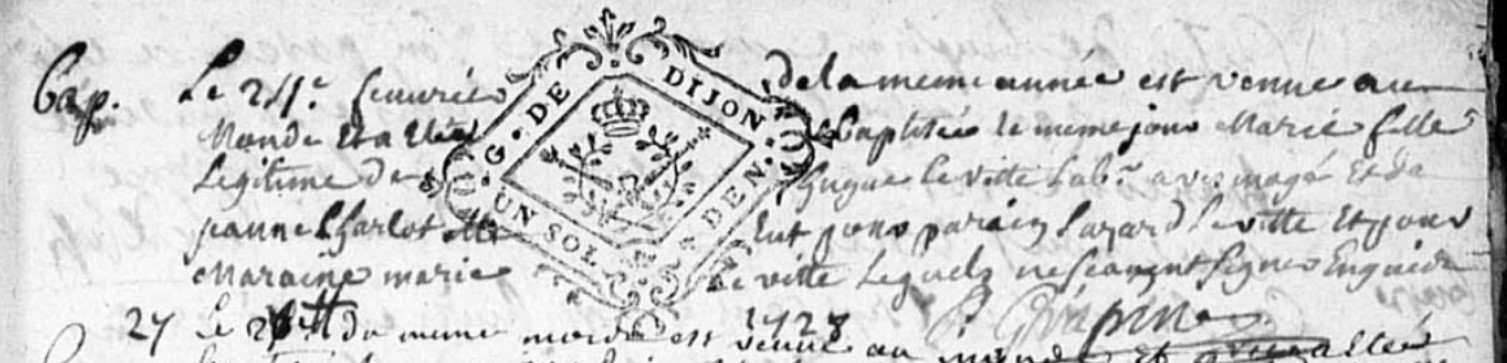 Bap. Le 24e feuvrier de la meme année est venue au
Monde Et a Eté Baptisée le meme jour Marie fille
Legitime de hugue Le vitte Labr. a vermagé Et de
jeanne Charlot Elle Eut pour parain Lazard Le vitte Et pour
Maraine marie Le vitte Lesquels ne scavent signer Enquis
G. DE DIJON
UN SOL DEN.
27 Le du meme mois est venue au monde Et Etée
1728